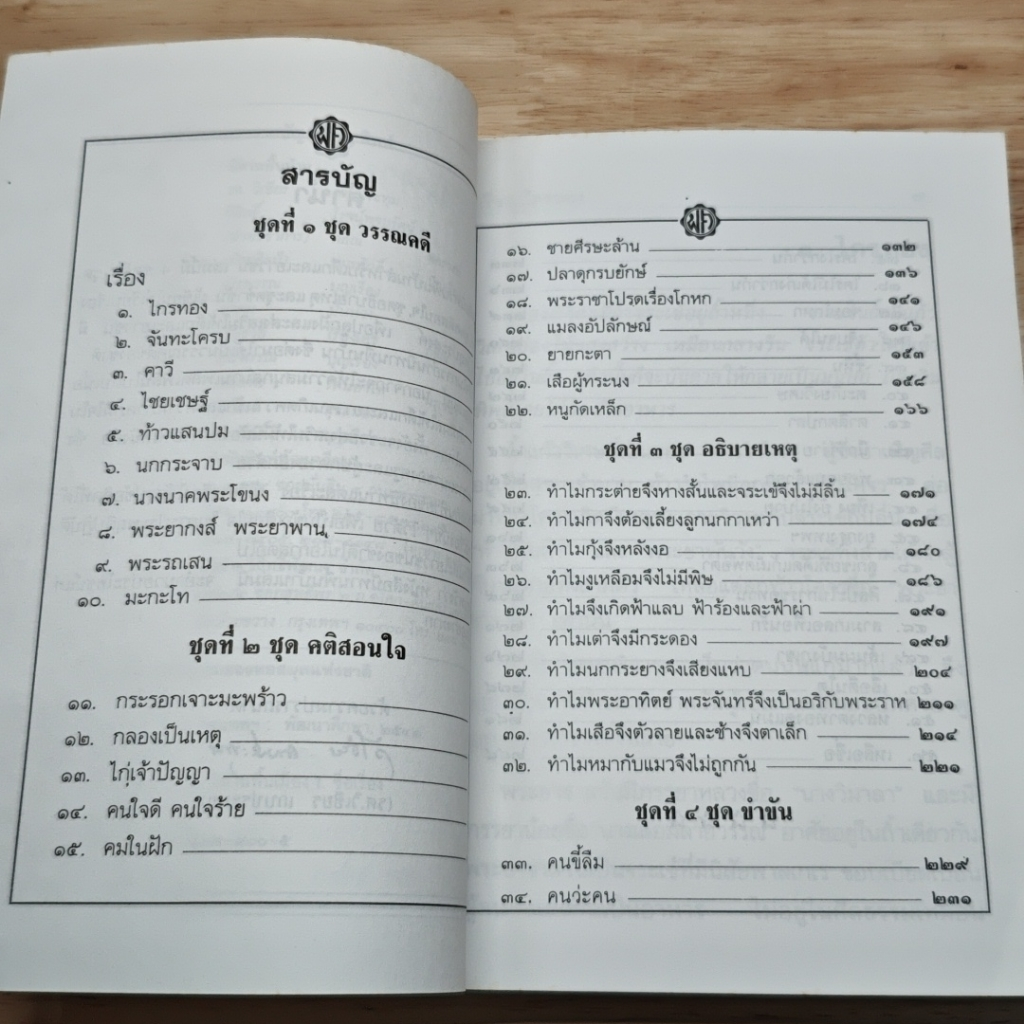 สารบัญ
ชุดที่ ๑ ชุด วรรณคดี
เรื่อง
๑. ไกรทอง
๒. จันทะโครบ
๓. คาวี
๔. ไชยเชษฐ์
๕. ท้าวแสนปม
๖. นกกระจาบ
๗. นางนาคพระโขนง
๘. พระยากงส์ พระยาพาน
๙. พระรถเสน
๑๐. มะกะโท
ชุดที่ ๒ ชุด คติสอนใจ
๑๑. กระรอกเจาะมะพร้าว
๑๒. กลองเป็นเหตุ
๑๓. ไก่เจ้าปัญญา
๑๔. คนใจดี คนใจร้าย
๑๕. คมในฝัก
๑๖. ชายศีรษะล้าน ๑๓๒
๑๗. ปลาดุกรบยักษ์ ๑๓๖
๑๘. พระราชาโปรดเรื่องโกหก ๑๔๑
๑๙. แมลงอัปลักษณ์ ๑๔๖
๒๐. ยายกะตา ๑๕๓
๒๑. เสือผู้ทระนง ๑๕๘
๒๒. หนูกัดเหล็ก ๑๖๖
ชุดที่ ๓ ชุด อธิบายเหตุ
๒๓. ทำไมกระต่ายจึงหางสั้นและจระเข้จึงไม่มีลิ้น ๑๗๑
๒๔. ทำไมกาจึงต้องเลี้ยงลูกนกกาเหว่า ๑๗๔
๒๕. ทำไมกุ้งจึงหลังงอ ๑๘๐
๒๖. ทำไมงูเหลือมจึงไม่มีพิษ ๑๘๖
๒๗. ทำไมจึงเกิดฟ้าแลบ ฟ้าร้องและฟ้าผ่า ๑๙๑
๒๘. ทำไมเต่าจึงมีกระดอง ๑๙๗
๒๙. ทำไมนกกระยางจึงเสียงแหบ ๒๐๔
๓๐. ทำไมพระอาทิตย์ พระจันทร์จึงเป็นอริกับพระราห ๒๑๑
๓๑. ทำไมเสือจึงตัวลายและช้างจึงตาเล็ก ๒๑๔
๓๒. ทำไมหมากับแมวจึงไม่ถูกกัน ๒๒๑
ชุดที่ ๔ ชุด ขำขัน
๓๓. คนขี้ลืม ๒๒๙
๓๔. คนว่ะคน ๒๓๑